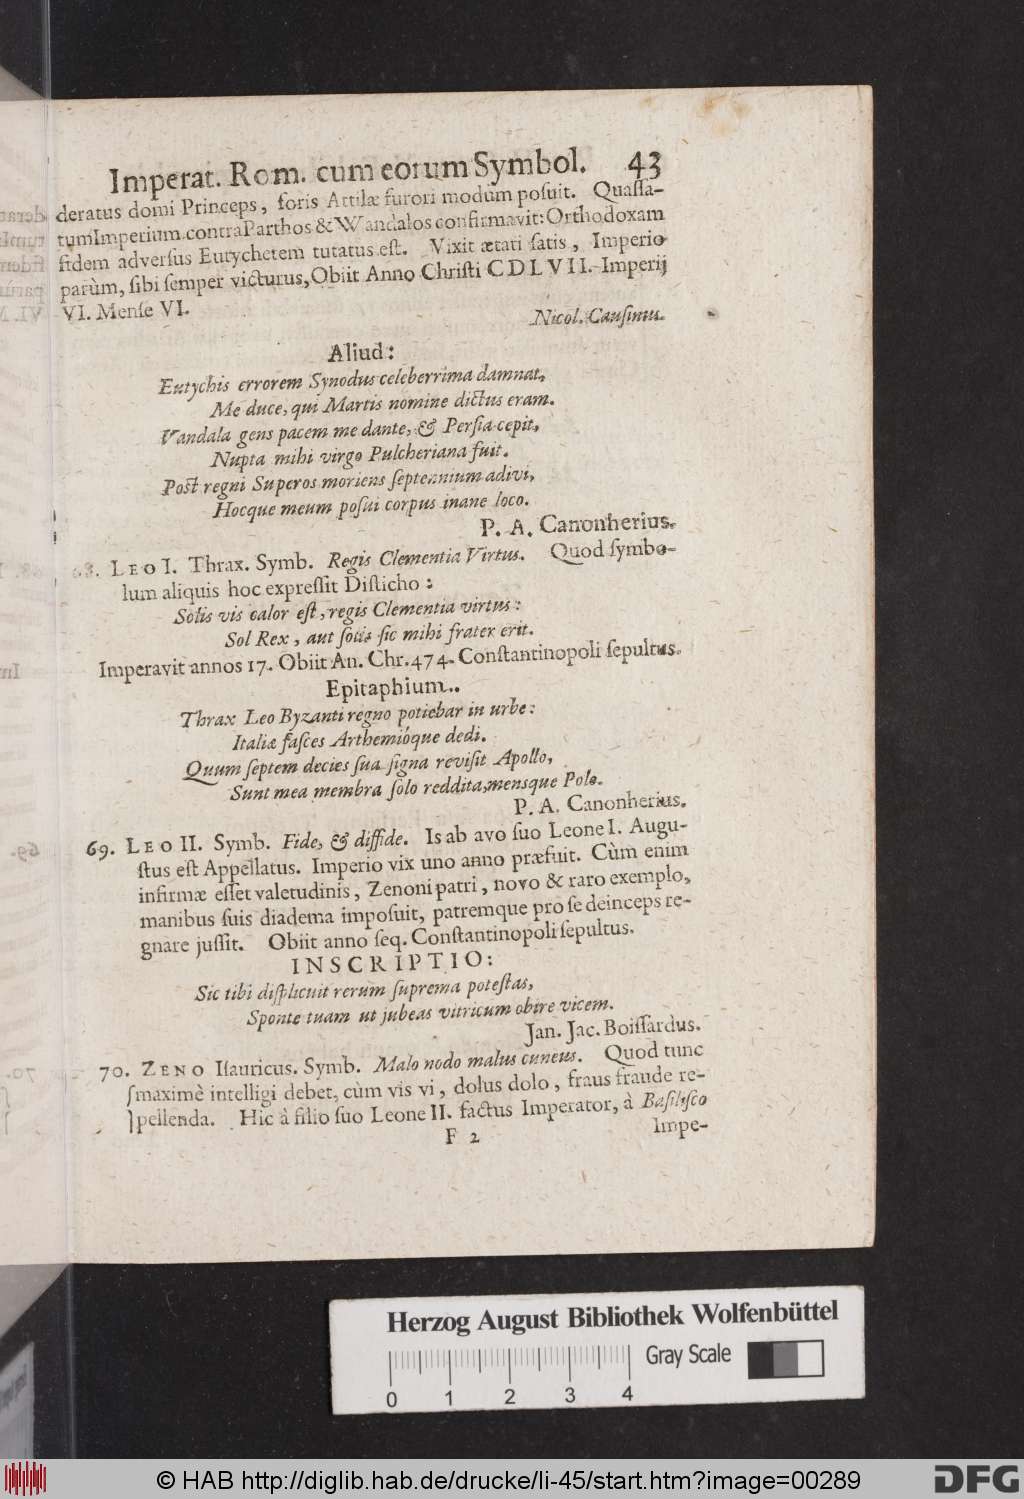 Imperat. Rom. cum eorum Symbol. 43
deratus domi Princeps, foris Attilæ furori modum posuit. Quassa-
tum Imperium contra Parthos & Wandalos confirmavit: Orthodoxam
fidem adversus Eutychetem tutatus est. Vixit ætati satis, Imperio
parùm, sibi semper victurus, Obiit Anno Christi CDLVII. Imperij
VI. Mense VI.
Nicol. Causinus.
Aliud:
Eutychis errorem Synodus celeberrima damnat,
Me duce, qui Martis nomine dictus eram.
Vandala gens pacem me dante, & Persia cepit,
Nupta mihi virgo Pulcheriana fuit.
Post regni Superos moriens septennium adivi,
Hocque meum posui corpus inane loco.
P. A. Canonherius.
68. LEO I. Thrax. Symb. Regis Clementia Virtus. Quod symbo-
lum aliquis hoc expressit Disticho:
Solis vis calor est, regis Clementia virtus:
Sol Rex, aut solis sic mihi frater erit.
Imperavit annos 17. Obiit An. Chr. 474. Constantinopoli sepultus.
Epitaphium.
Thrax Leo Byzanti regno potiebar in urbe:
Italiæ fasces Arthemióque dedi.
Quum septem decies sua signa revisit Apollo,
Sunt mea membra solo reddita, mensque Polo.
P. A. Canonherius.
69. LEO II. Symb. Fide, & diffide. Is ab avo suo Leone I. Augu-
stus est Appellatus. Imperio vix uno anno præfuit. Cùm enim
infirmæ esset valetudinis, Zenoni patri, novo & raro exemplo,
manibus suis diadema imposuit, patremque pro se deinceps re-
gnare jussit. Obiit anno seq. Constantinopoli sepultus.
INSCRIPTIO:
Sic tibi displicuit rerum suprema potestas,
Sponte tuam ut jubeas vitricum obire vicem.
Jan. Jac. Boissardus.
70. ZENO Isauricus. Symb. Malo nodo malus cuneus. Quod tunc
maximè intelligi debet, cùm vis vi, dolus dolo, fraus fraude re-
pellenda. Hic à filio suo Leone II. factus Imperator, à Basilisco
F 2
Impe-
Herzog August Bibliothek Wolfenbüttel
Gray Scale
0 1 2 3 4
© HAB http://diglib.hab.de/drucke/li-45/start.htm?image=00289
DFG